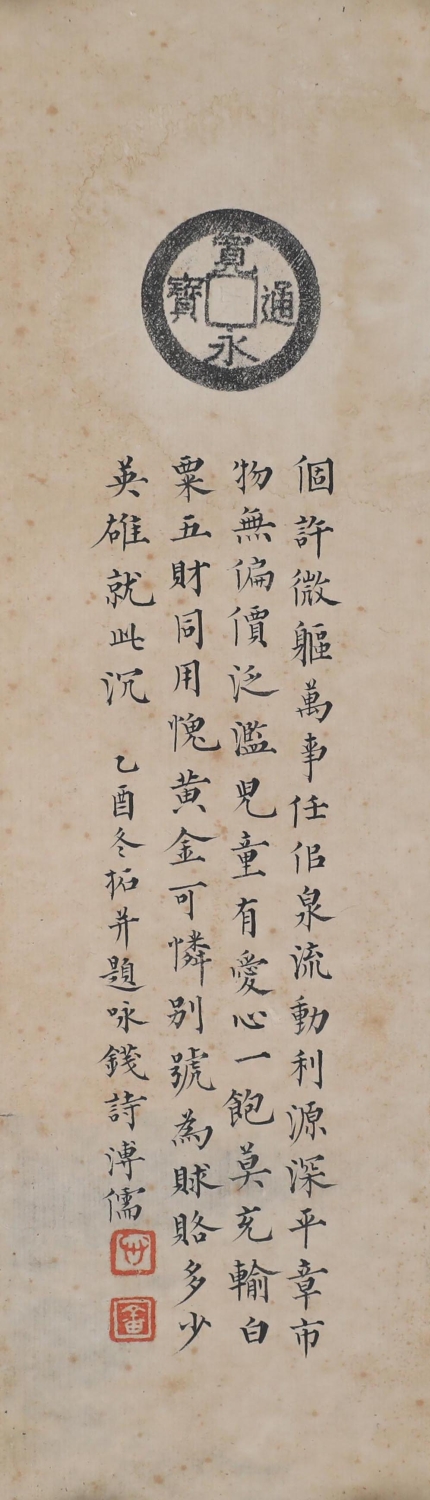 寬永通寶
個許微軀萬事任佀泉流動利源深平章市
物無偏價泛濫兒童有愛心一飽莫充輸白
粟五財同用愧黃金可憐別號為賕賂多少
英雄就此沉 乙酉冬拓并題咏錢詩溥儒